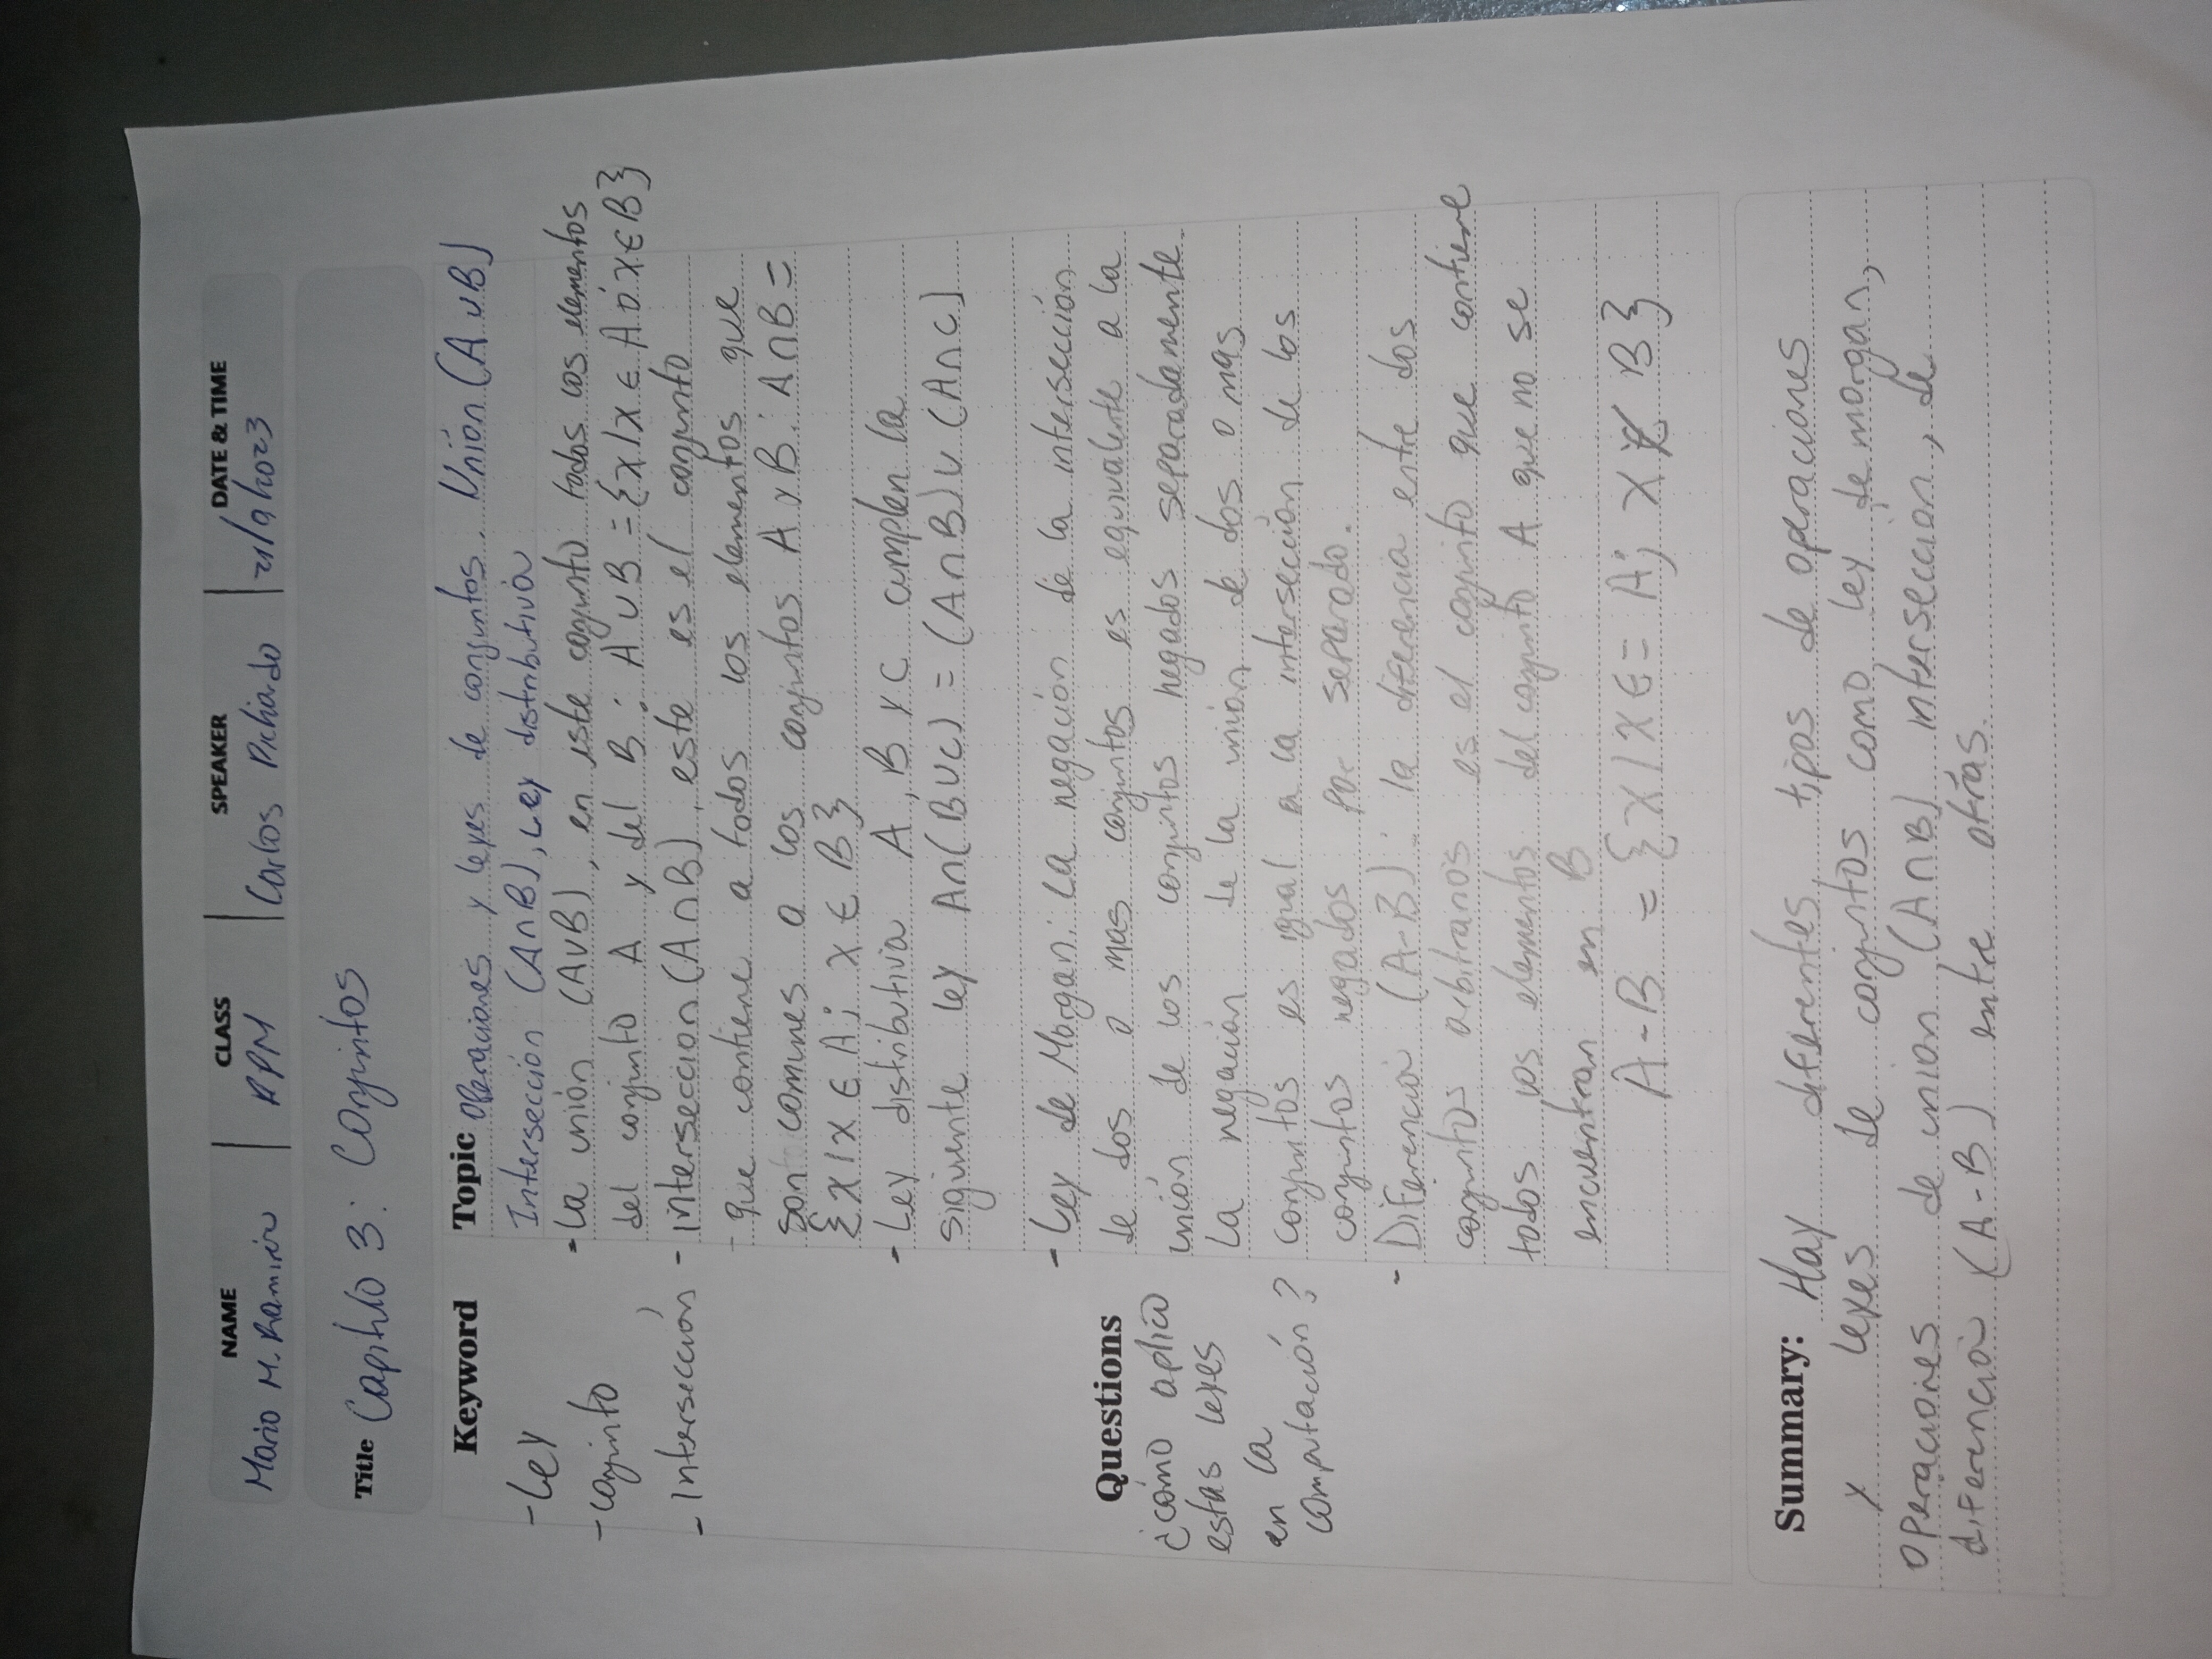 NAME CLASS SPEAKER DATE & TIME
Mario M. Ramirez RPM Carlos Pichardo 21/9/2023
Title Capitulo 3: Conjuntos
Keyword
-Ley
-conjunto
- Intersección
Topic Operaciones y leyes de conjuntos. Unión (A ∪ B)
Intersección (A ∩ B), Ley distributiva
- La unión (A∪B), en este conjunto todos los elementos
del conjunto A y del B: A ∪ B = {x/x ∈ A ó x ∈ B}
- intersección (A ∩ B), este es el conjunto
que contiene a todos los elementos que
son comunes a los conjuntos A y B: A ∩ B =
{x/x ∈ A; x ∈ B}
- Ley distributiva A, B y C cumplen la
siguiente ley A∩(B∪C) = (A∩B)∪(A∩C)
- Ley de Morgan: La negación de la intersección
de dos o mas conjuntos es equivalente a la
unión de los conjuntos negados separadamente.
La negación de la unión de dos o mas
conjuntos es igual a la intersección de los
conjuntos negados por separado.
- Diferencia (A-B): la diferencia entre dos
conjuntos arbitrarios es el conjunto que contiene
todos los elementos del conjunto A que no se
encuentran en B
A-B = {x/x ∈ = A; x ∉ B}
Questions
¿cómo aplico
estas leyes
en la
computación?
Summary: Hay diferentes tipos de operaciones
y leyes de conjuntos como ley de morgan,
operaciones de union (A∩B) intersección, de
diferencia (A-B) entre otras.